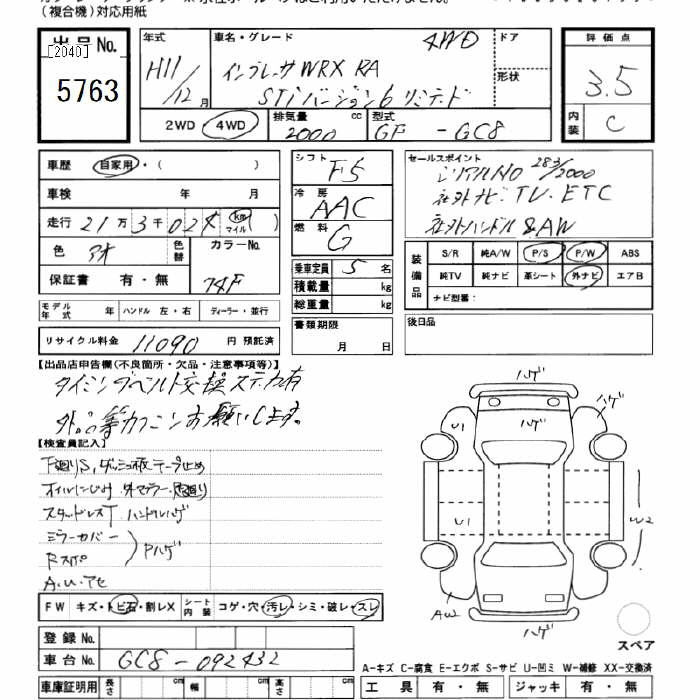 (複合機)対応用紙
出品No.
[2040]
5763
年式
H11/12月
車名・グレード
4WD
インプレッサWRX RA
STiバージョン6リミテッド
ドア
形状
2WD・4WD
排気量 cc
2000
型式
GF - GC8
評価点
3.5
内装
C
車歴 自家用・( )
車検 年 月
走行 21万3千02* km マイル ( )
色
色替
カラーNo.
74F
保証書 有・無
モデル年式 年 ハンドル 左・右 ディーラー・並行
リサイクル料金 11090 円 預託済
シフト F5
冷房 AAC
燃料 G
乗車定員 5 名
積載量 kg
総重量 kg
書類期限
月 日
セールスポイント
シリアルNO 283/2000
社外ナビ・TV・ETC
社外ハンドル&AW
装備品
S/R 純A/W P/S P/W ABS
純TV 純ナビ 革シート 外ナビ エアB
ナビ型番:
後日品
【出品店申告欄(不良箇所・欠品・注意事項等)】
タイミングベルト交換ステッカ有
外品等カクニンお願いします。
【検査員記入】
下廻りS,ダッシュ板テープ止め
オイルにじみ 外マフラー
スタッドレスT ハンドルハゲ
ミラーカバー
Rスポ
Pハゲ
A.U.テセ
FW キズ・トビ石・割レX シート内装 コゲ・穴・汚レ・シミ・破レ・スレ
登録No.
車台No. GC8-092432
車庫証明用 長さ cm 幅 cm 高さ cm
ハゲ
ハゲ
ハゲ
U1
U1
W2
AW2
ハゲ
スペア
A-キズ C-腐食 E-エクボ S-サビ U-凹ミ W-補修 XX-交換済
工具 有・無 ジャッキ 有・無